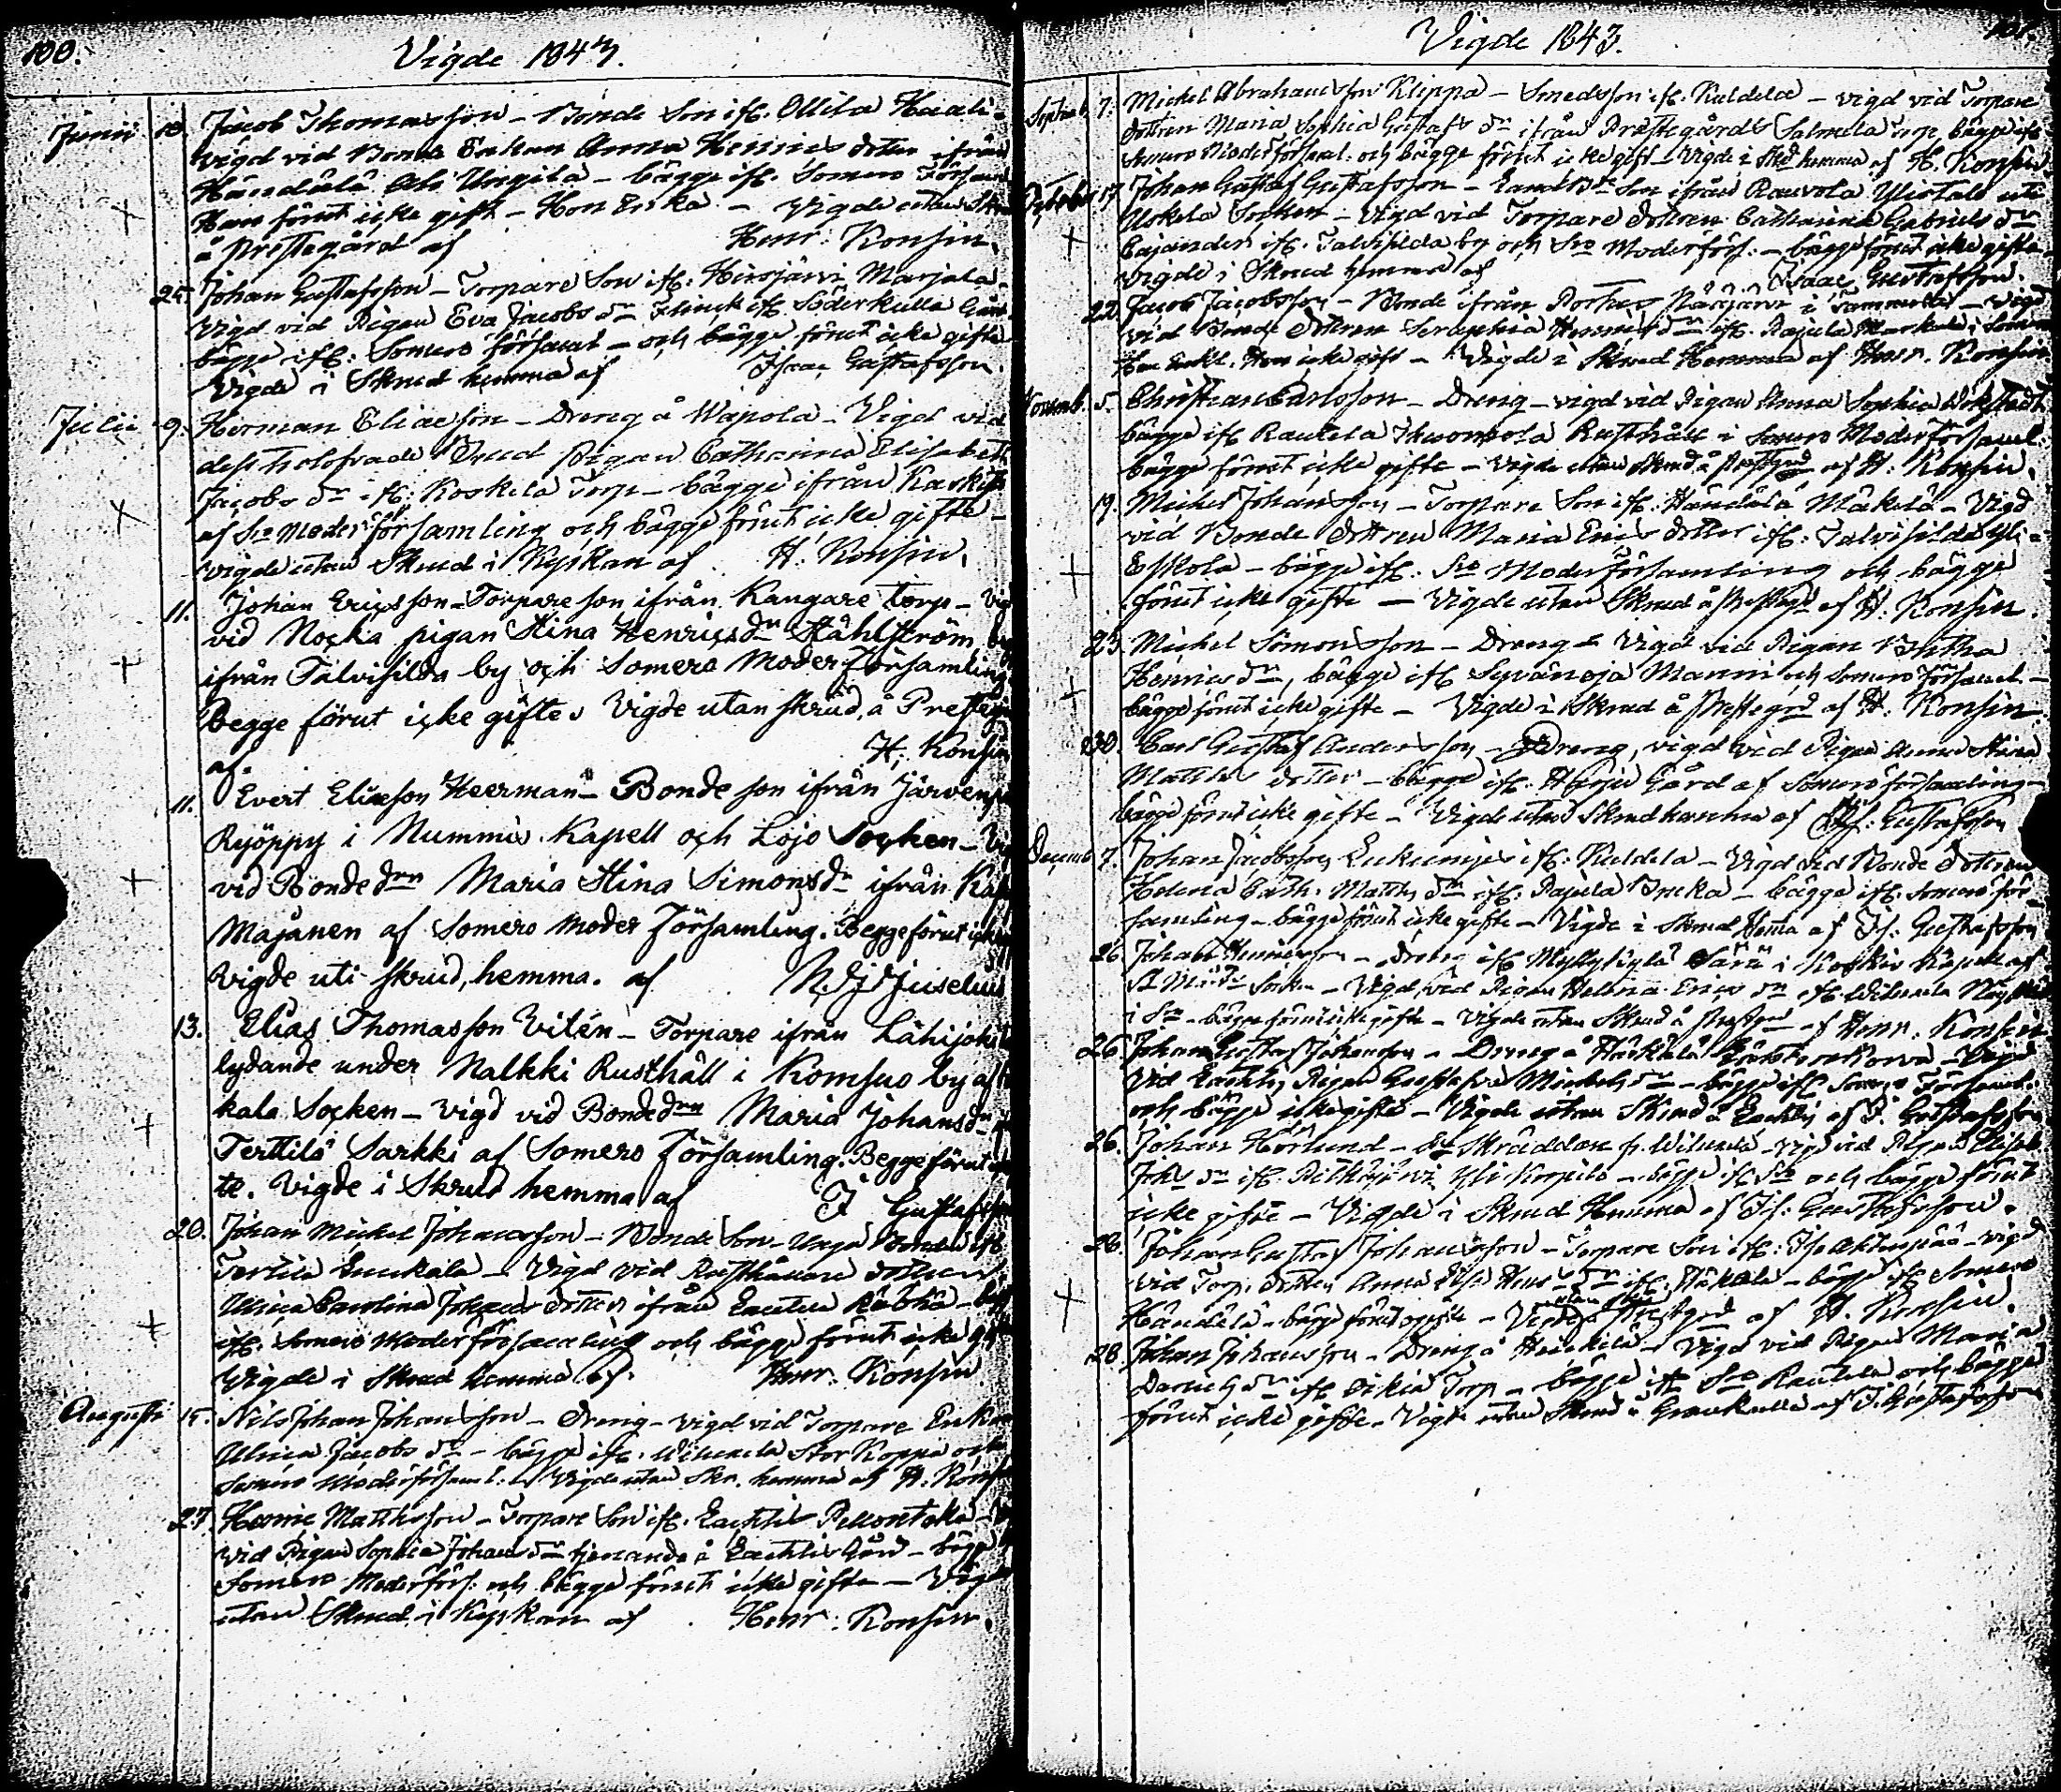 100.
Vigde 1843.
Junii 18. Jacob Thomasson - Bonde Son ifr. Ollila Haali-
vigd vid Bonde Enkan Anna Henrics dotter ifrån
Händälä Ali Ungila - bägge ifr. Somero Församl
Han förut icke gift - Hon Enka - Vigde utan Skru
å Prestegård af Henr: Konsin.
25. Johan Gustafsson - Torpare Son ifr. Hirsjärvi Marjala
Vigd vid Pigan Eva Jacobs dr Flinck ifr. Söderkulla Gård
bägge ifr: Somero församl - och bägge förut icke gifte
Vigde i Skrud hemma af Isaac Gustafsson.
Julii 9. Herman Eliasson - Dreng å Wapola - Vigd vid
dess trolofvade Brud Pigan Catharina Elisabeth
Jacobs dr ifr: Koskela Torp - bägge ifrån
af Sro Moder församling och bägge förut icke gifte -
vigde utan Skrud i Kyrkan af H. Konsin.
11. Johan Ericsson - Torpare son ifrån Kangare torp - Vig
vid Nocka pigan Stina Henricsdr Ståhlström
ifrån Talvisilda by och Somero Moder Församling
Begge förut icke gifte. Vigde utan skrud, å Prestegå
af H. Konsin
11. Evert Eliæson Heerman - Bonde son ifrån Järvenpä
Ryöppy i Nummis Kapell och Lojo Socken - Vig
vid Bonde drn Maria Stina Simonsdr ifrån
Majanen af Somero Moder Församling. Begge förut icke
vigde uti skrud, hemma. af Juselius
13. Elias Thomasson Vilén - Torpare ifrån Lähijoki
lydande under Nalkki Rusthåll i Komsuo by af
kala Socken - vigd vid Bonde drn Maria Johansdr
Terttilä Sarkki af Somero Församling. Begge förut
te. Vigde i Skrud hemma af I Gustafsson
20. Johan Michel Johansson - Bonde Son - Unga Bonden ifr
Terttilä Enckala - Vigd vid Rusthållare dottren
Ulrica Carolina Johans dotter ifrån
ifr. Somero Moder församling och bägge förut icke gif
Vigde i Skrud hemma af Henr. Konsin.
Augusti 15. Nils Johan Johansson - Dreng - vigd vid Torpare Enkan
Ulrica Jacobs dr - bägge ifr. Wiluksela Stor Koppa och
Somero Moderförsaml. - Vigde utan Skr. hemma af H. Kons
27. Henric Matthsson - Torpare Son ifr. Lachtis
vid Pigan Sophia Johans dr tjenande å Lachtis Gård - bägg
Somero Moderförs: och bägge förut icke gifte - Vigde
utan Skrud i Kyrkan af Henr: Konsin.
101.
Vigde 1843.
Septemb. 7. Michel Abrahamsson Klippa - Smedsson ifr. Kuldela - vigd vid Torpare
dottren Maria Sophia Gustafs dr ifrån Præstegårds Salmela Torp, bägge ifr
Somero Moderförsaml. och bägge förut icke gift - Vigde i Skrd hemma af H. Konsin.
Octobr 17. Johan Gustaf Gustafsson - Landbde Son ifrån Rauvola Ylistalo uti
Uskela Socken - Vigd vid Torpare dottren Catharina Gabriels dr
Cajander ifr. Talvisilda by och Sro Moderförs. - bägge förut icke gifte -
Vigde i Skrud hemma af Isaac Gustafsson.
22. Jacob Jacobsson - Bonde ifrån i Sammatti - Vigd
vid Bonde dottren Seraphia Henrics dr ifr. Pajula i Somero
Han Enkl. Hon icke gift - Vigde i Skrud Hemma af Henr. Konsin
Novemb. 5. Christian Carlsson - Dreng - vigd vid Pigan Anna Sophia
bägge ifr Rautela Rusthåll i Somero Moderförsaml.
bägge förut icke gifte - vigde utan Skrud å Prestgrd af H. Konsin.
19. Michel Johansson - Torpare Son ifr. Händälä Mäkelä - Vigd
vid Bonde dottren Maria Erics dotter ifr. Talvisilda Yli-
Eskola - bägge ifr. Sro Moderförsamling och bägge
förut icke gifte - Vigde utan Skrud å Prestegrd af H. Konsin.
23. Michel Simonsson - Dreng - Vigd vid Pigan
Henrics dr, bägge ifr Syvänoja Manni och Somero Församl. -
bägge förut icke gifte - Vigde i Skrud å Prestegrd af H. Konsin.
30. Carl Gustaf Andersson - Dreng, vigd vid Pigan Anna Stina
Matths dotter - bägge ifr. Gård af Somero församling -
bägge förut icke gifte - Vigde utan Skrud hemma af Is: Gustafsson
Decemb 7. Johan Jacobsson ifr. Kuldela - Vigd vid Bonde dottren
Helena Cath. Matths dr ifr. Pajula - bägge ifr. Somero för
samling - bägge förut icke gifte - Vigde i Skrud Hema af Is. Gustafsson
26. Johan Henricsson - Dreng ifr Myllykylä Särä i Koskis Kapell af
St Mårtens Socken - Vigd vid Pigan Helena Erics dr ifr. Wiluksela
i Sro - bägge förut icke gifte - Vigde utan Skrud å Prestgrd af Henr. Konsin
26. Johan Gustaf Johansson - Dreng å
vid Lachtis Pigan Gustafva Michels dr - bägge ifr Somero Församl.
och bägge icke gifte - Vigde utan Skrud å Lachtis af I. Gustafsson
26. Johan Hörlund - Skräddare fr. Wiluksela - vigd vid Pigan
Johs dr ifr. Pitkäjärvi Yli Korpila - bägge ifr Sro och bägge förut
icke gifte - Vigde i Skrud Hemma af Is: Gustafsson.
28. Johan Gustaf Johansson - Torpare Son ifr: - vigd
vid Torp. dottren Anna Lisa Henrs dr ifr. - bägge ifr Somero
Händälä - bägge förut ogifte - Vigde utan Skrud å Prestgrd af H. Konsin.
28. Johan Johansson - Dreng å - Vigd vid Pigan Maria
Daniels dr ifr Torp - bägge ifr Sro Rautela och bägge
förut icke gifte - Vigde utan Skrud å af I. Gustafsson